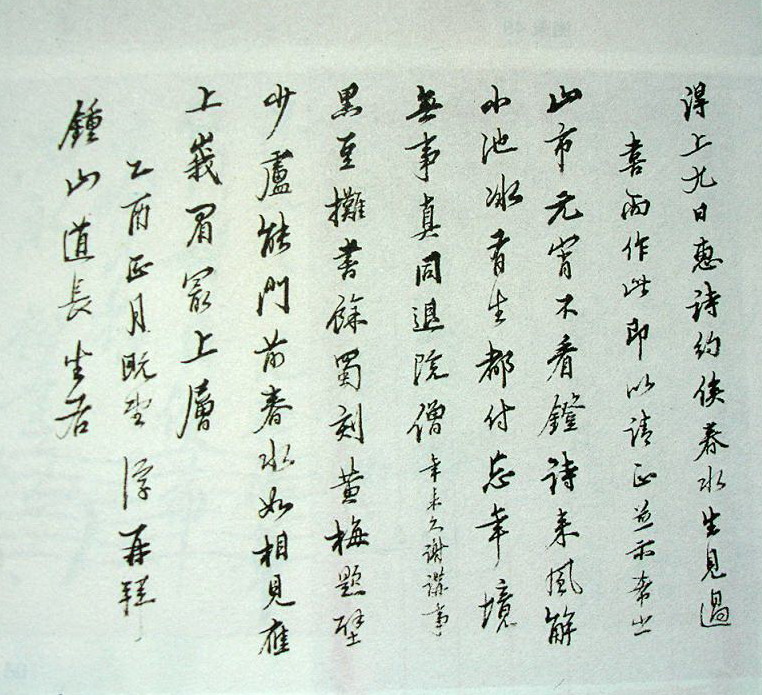 得上九日惠詩約俟春水生見過
喜而作此即以請正並示希之
山市元宵不看鐙詩來風解
小池冰有生都付忘年境
無事真同退院僧年來久謝講事
黑豆攤書餘蜀刻黃梅題壁
少盧能門前春水如相見應
上峩眉最上層
乙酉正月既望 浮再拜
鍾山道長坐右